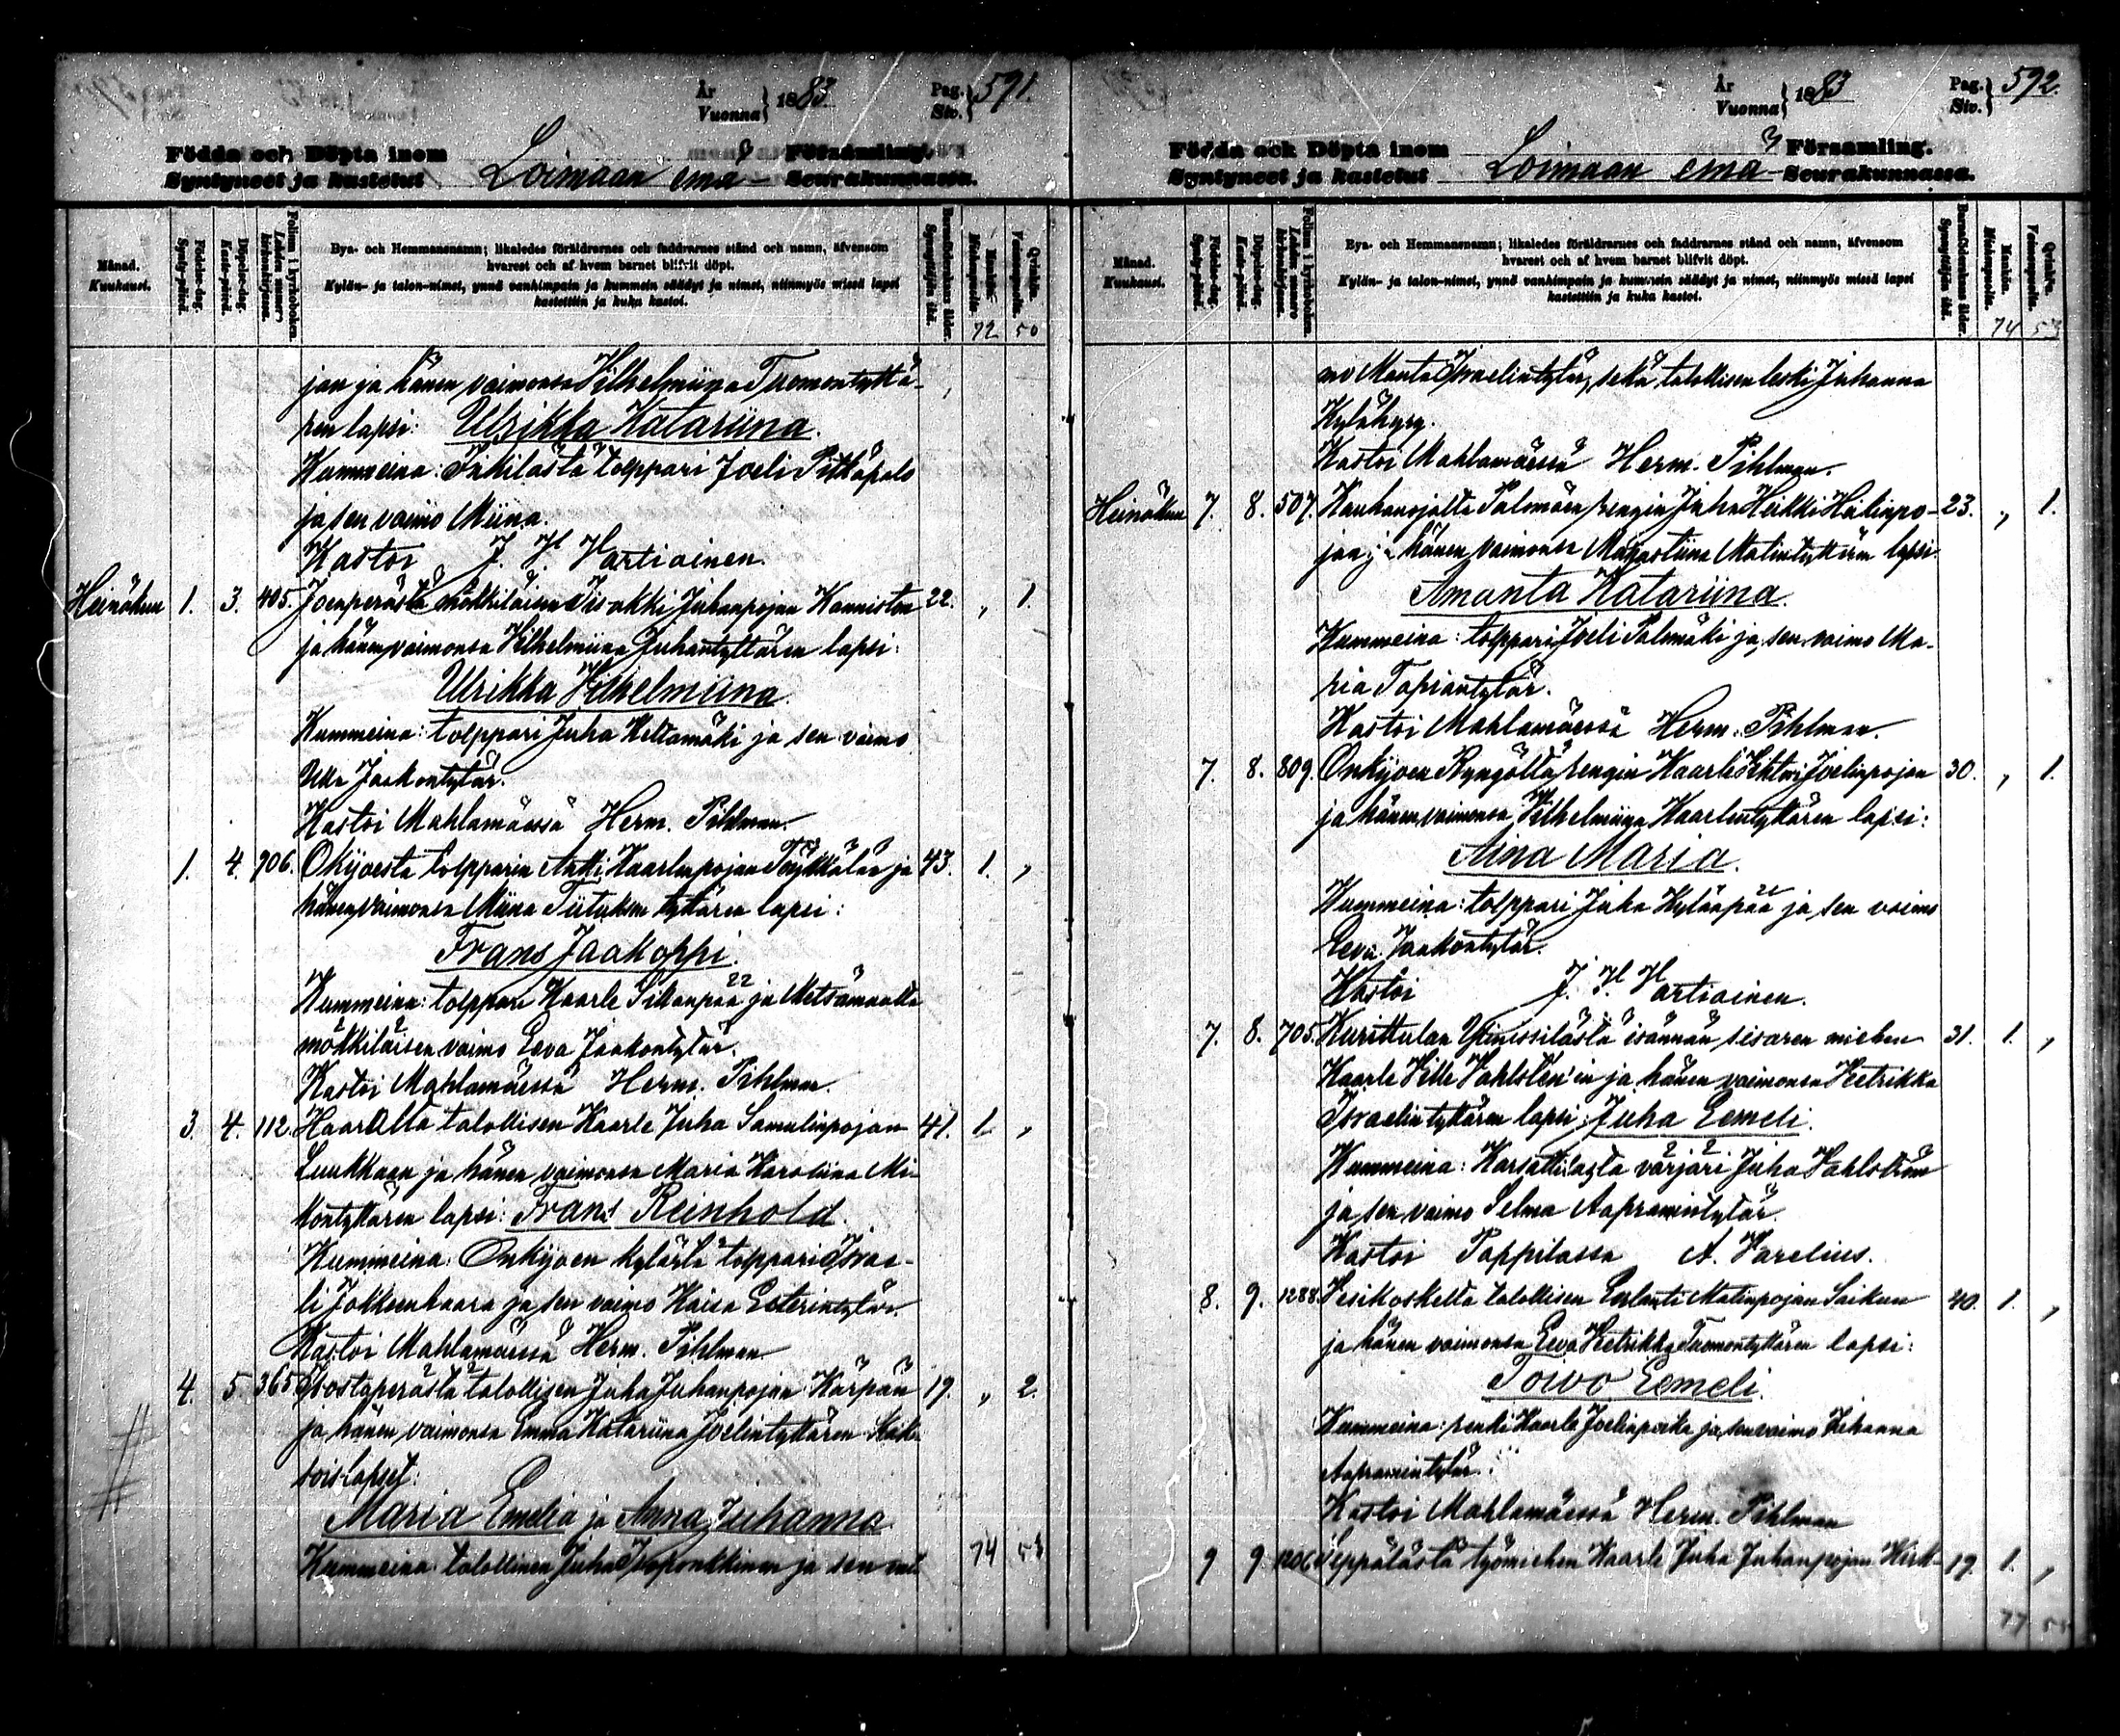 År
Vuonna } 1883.
Pag.
Siv. } 591.
Födda och Döpta inom
Syntyneet ja kastetut
Loimaan emä-
Församling.
Seurakunnassa.
Månad.
Kuukausi.
Födelse-dag.
Synty-päivä.
Döpelse-dag.
Kaste-päivä.
Folium i kyrkoboken.
Bya- och Hemmansnamn; likaledes föräldrarnes och faddrarnes stånd och namn, äfvensom
hvarest och af hvem barnet blifvit döpt.
Kylän- ja talon-nimet, ynnä vanhimpain ja kummein säädyt ja nimet, niinmyös missä lapsi
kastettiin ja kuka kastoi.
Barnaföderskans ålder.
Synnyttäjän ikä.
Mankön.
Miehenpuolia.
Qvinkön.
Vaimonpuolia.
72 50
jan ja hänen vaimonsa Vilhelmiina Tuomontyttä-
ren lapsi: Ulrikka Katariina.
Kummeina: Inkilästä torppari Joeli Pitkäpalo
ja sen vaimo Miina.
Kastoi J. H. Vartiainen.
Heinäkuu 1. 3. 405. Joenperästä mökkiläisen Iisakki Juhanpojan Kanniston 22. „ 1.
ja hänen vaimonsa Vilhelmiina Juhantyttären lapsi:
Ulrikka Vilhelmiina.
Kummeina: torppari Juha Keltamäki ja sen vaimo
Ulla Jaakontytär.
Kastoi Mahlamäessä Herm. Pihlman.
1. 4. 706. Okijoesta torpparin Antti Kaarlenpojan ja 43. 1. „
hänen vaimonsa Miina tyttären lapsi:
Frans Jaakoppi.
Kummeina: torppari Kaarle ja Metsämaalta
mökkiläisen vaimo Eeva Jaakontytär.
Kastoi Mahlamäessä Herm. Pihlman.
3. 4. 112. Haaralta talollisen Kaarle Juha Samulinpojan 41. 1. „
Luukkaan ja hänen vaimonsa Maria Karoliina Mi-
kontyttären lapsi: Frans Reinhold.
Kummeina: Onkijoen kylästä torppari Israe-
li Jokkeenhaara ja sen vaimo Kaisa Esterintytär.
Kastoi Mahlamäessä Herm. Pihlman.
4. 5. 365. talollisen Juha Juhanpojan Kärpän 19. „ 2.
ja hänen vaimonsa Emma Katariina Joelintyttären kak-
soislapset:
Maria Emelia ja Anna Juhanna.
Kummeina: talollinen Juha ja sen
74 53
År
Vuonna } 1883
Pag.
Siv. } 592.
Födda och Döpta inom
Syntyneet ja kastetut
Loimaan emä-
Församling.
Seurakunnassa.
Månad.
Kuukausi.
Födelse-dag.
Synty-päivä.
Döpelse-dag.
Kaste-päivä.
Folium i kyrkoboken.
Bya- och Hemmansnamn; likaledes föräldrarnes och faddrarnes stånd och namn, äfvensom
hvarest och af hvem barnet blifvit döpt.
Kylän- ja talon-nimet, ynnä vanhimpain ja kummein säädyt ja nimet, niinmyös missä lapsi
kastettiin ja kuka kastoi.
Barnaföderskans ålder.
Synnyttäjän ikä.
Mankön.
Miehenpuolia.
Qvinkön.
Vaimonpuolia.
74 53
mo Manta Israelintytär, sekä talollisen leski Juhanna
Kastoi Mahlamäessä Herm. Pihlman.
Heinäkuu 7. 8. 507. Kauhanojalta Palomäen rengin Juha Heikki -23. „ 1.
jan ja hänen vaimonsa Matintyttären lapsi:
Amanta Katariina.
Kummeina: torppari Joeli Palomäki ja sen vaimo Ma-
ria
Kastoi Mahlamäessä Herm. Pihlman.
7. 8. 809. Onkijoen rengin Kaarle Joelinpojan 30. „ 1.
ja hänen vaimonsa Vilhelmiina Kaarlentyttären lapsi:
Aina Maria.
Kummeina: torppari Juha Kyläapää ja sen vaimo
Eeva Jaakontytär.
Kastoi J. H. Vartiainen.
7. 8. 705. Kurittulan isännän sisaren miehen 31. 1. „
Kaarle Ville ja hänen vaimonsa Veetrikka
Israelin tyttären lapsi: Juha Eemeli.
Kummeina: värjäri Juha Vahlström
ja sen vaimo Selma Aapramintytär.
Kastoi Pappilassa A. Varelius.
8. 9. 1288. Vesikoskelta talollisen Erlanti Matinpojan Saikun 40. 1. „
ja hänen vaimonsa Eeva Veetrikka Tuomontyttären lapsi:
Toivo Eemeli.
Kummeina: renki Kaarle Joelinpoika ja sen vaimo Juhanna
Aapramintytär.
Kastoi Mahlamäessä Herm. Pihlman
9 9. 1206 Seppälästä työmiehen Kaarle Juha Juhanpojan Kirk- 19. 1. „
77